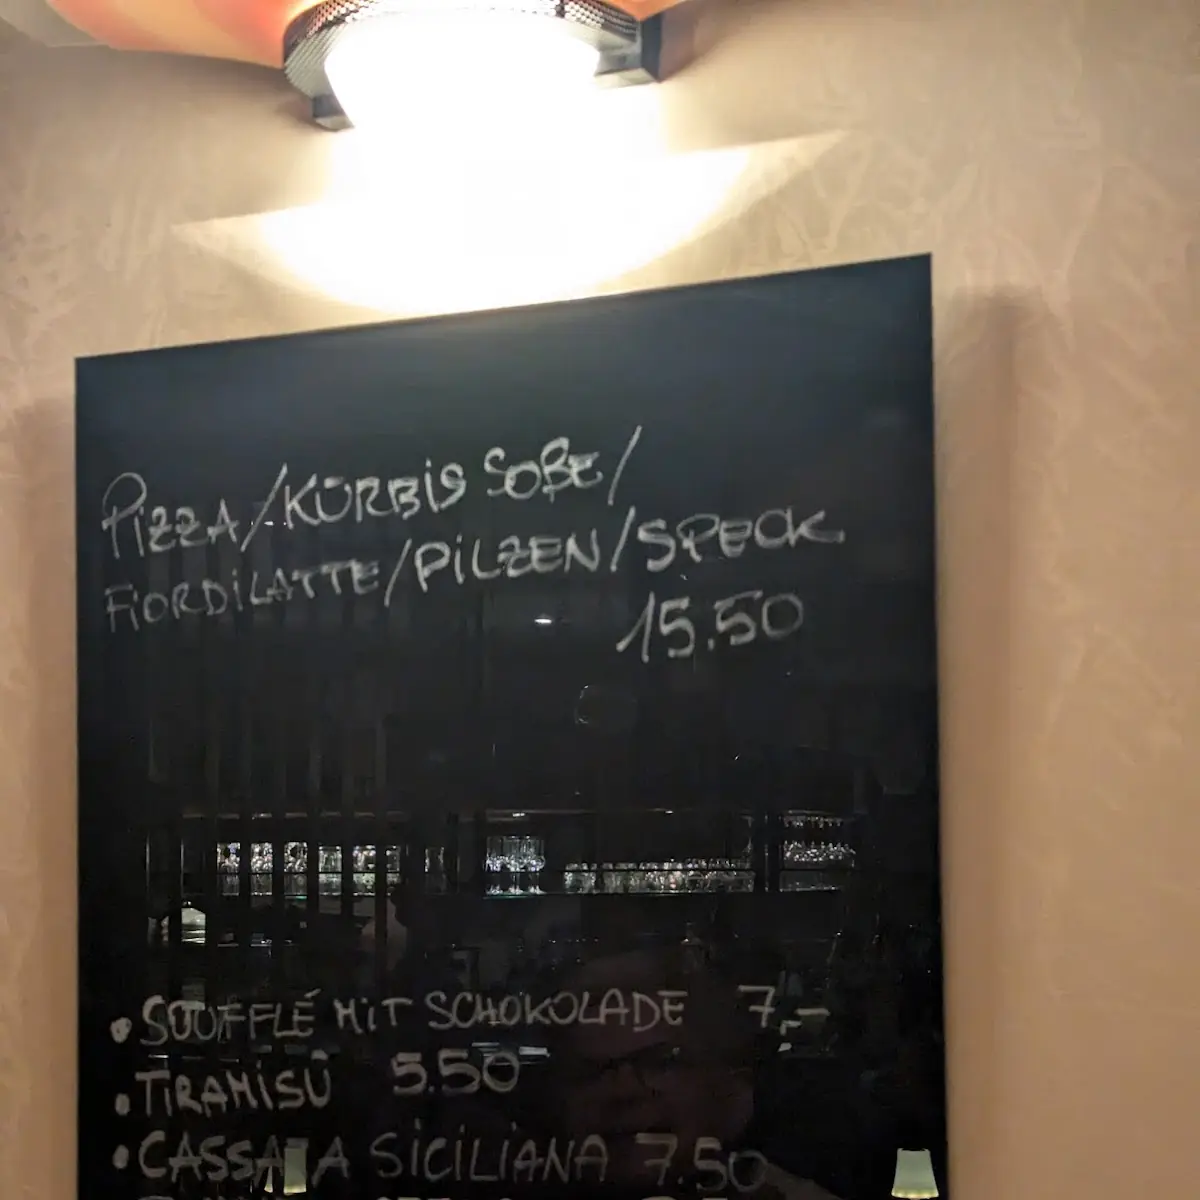 PiZZA/KÜRBiS SOßE/
FiORDiLATTE/PiLZEN/SPECK
15.50
• SOUFFLÉ MiT SCHOKOLADE 7,-
• TiRAMiSÙ 5.50
• CASSATA SiCiLiANA 7.50